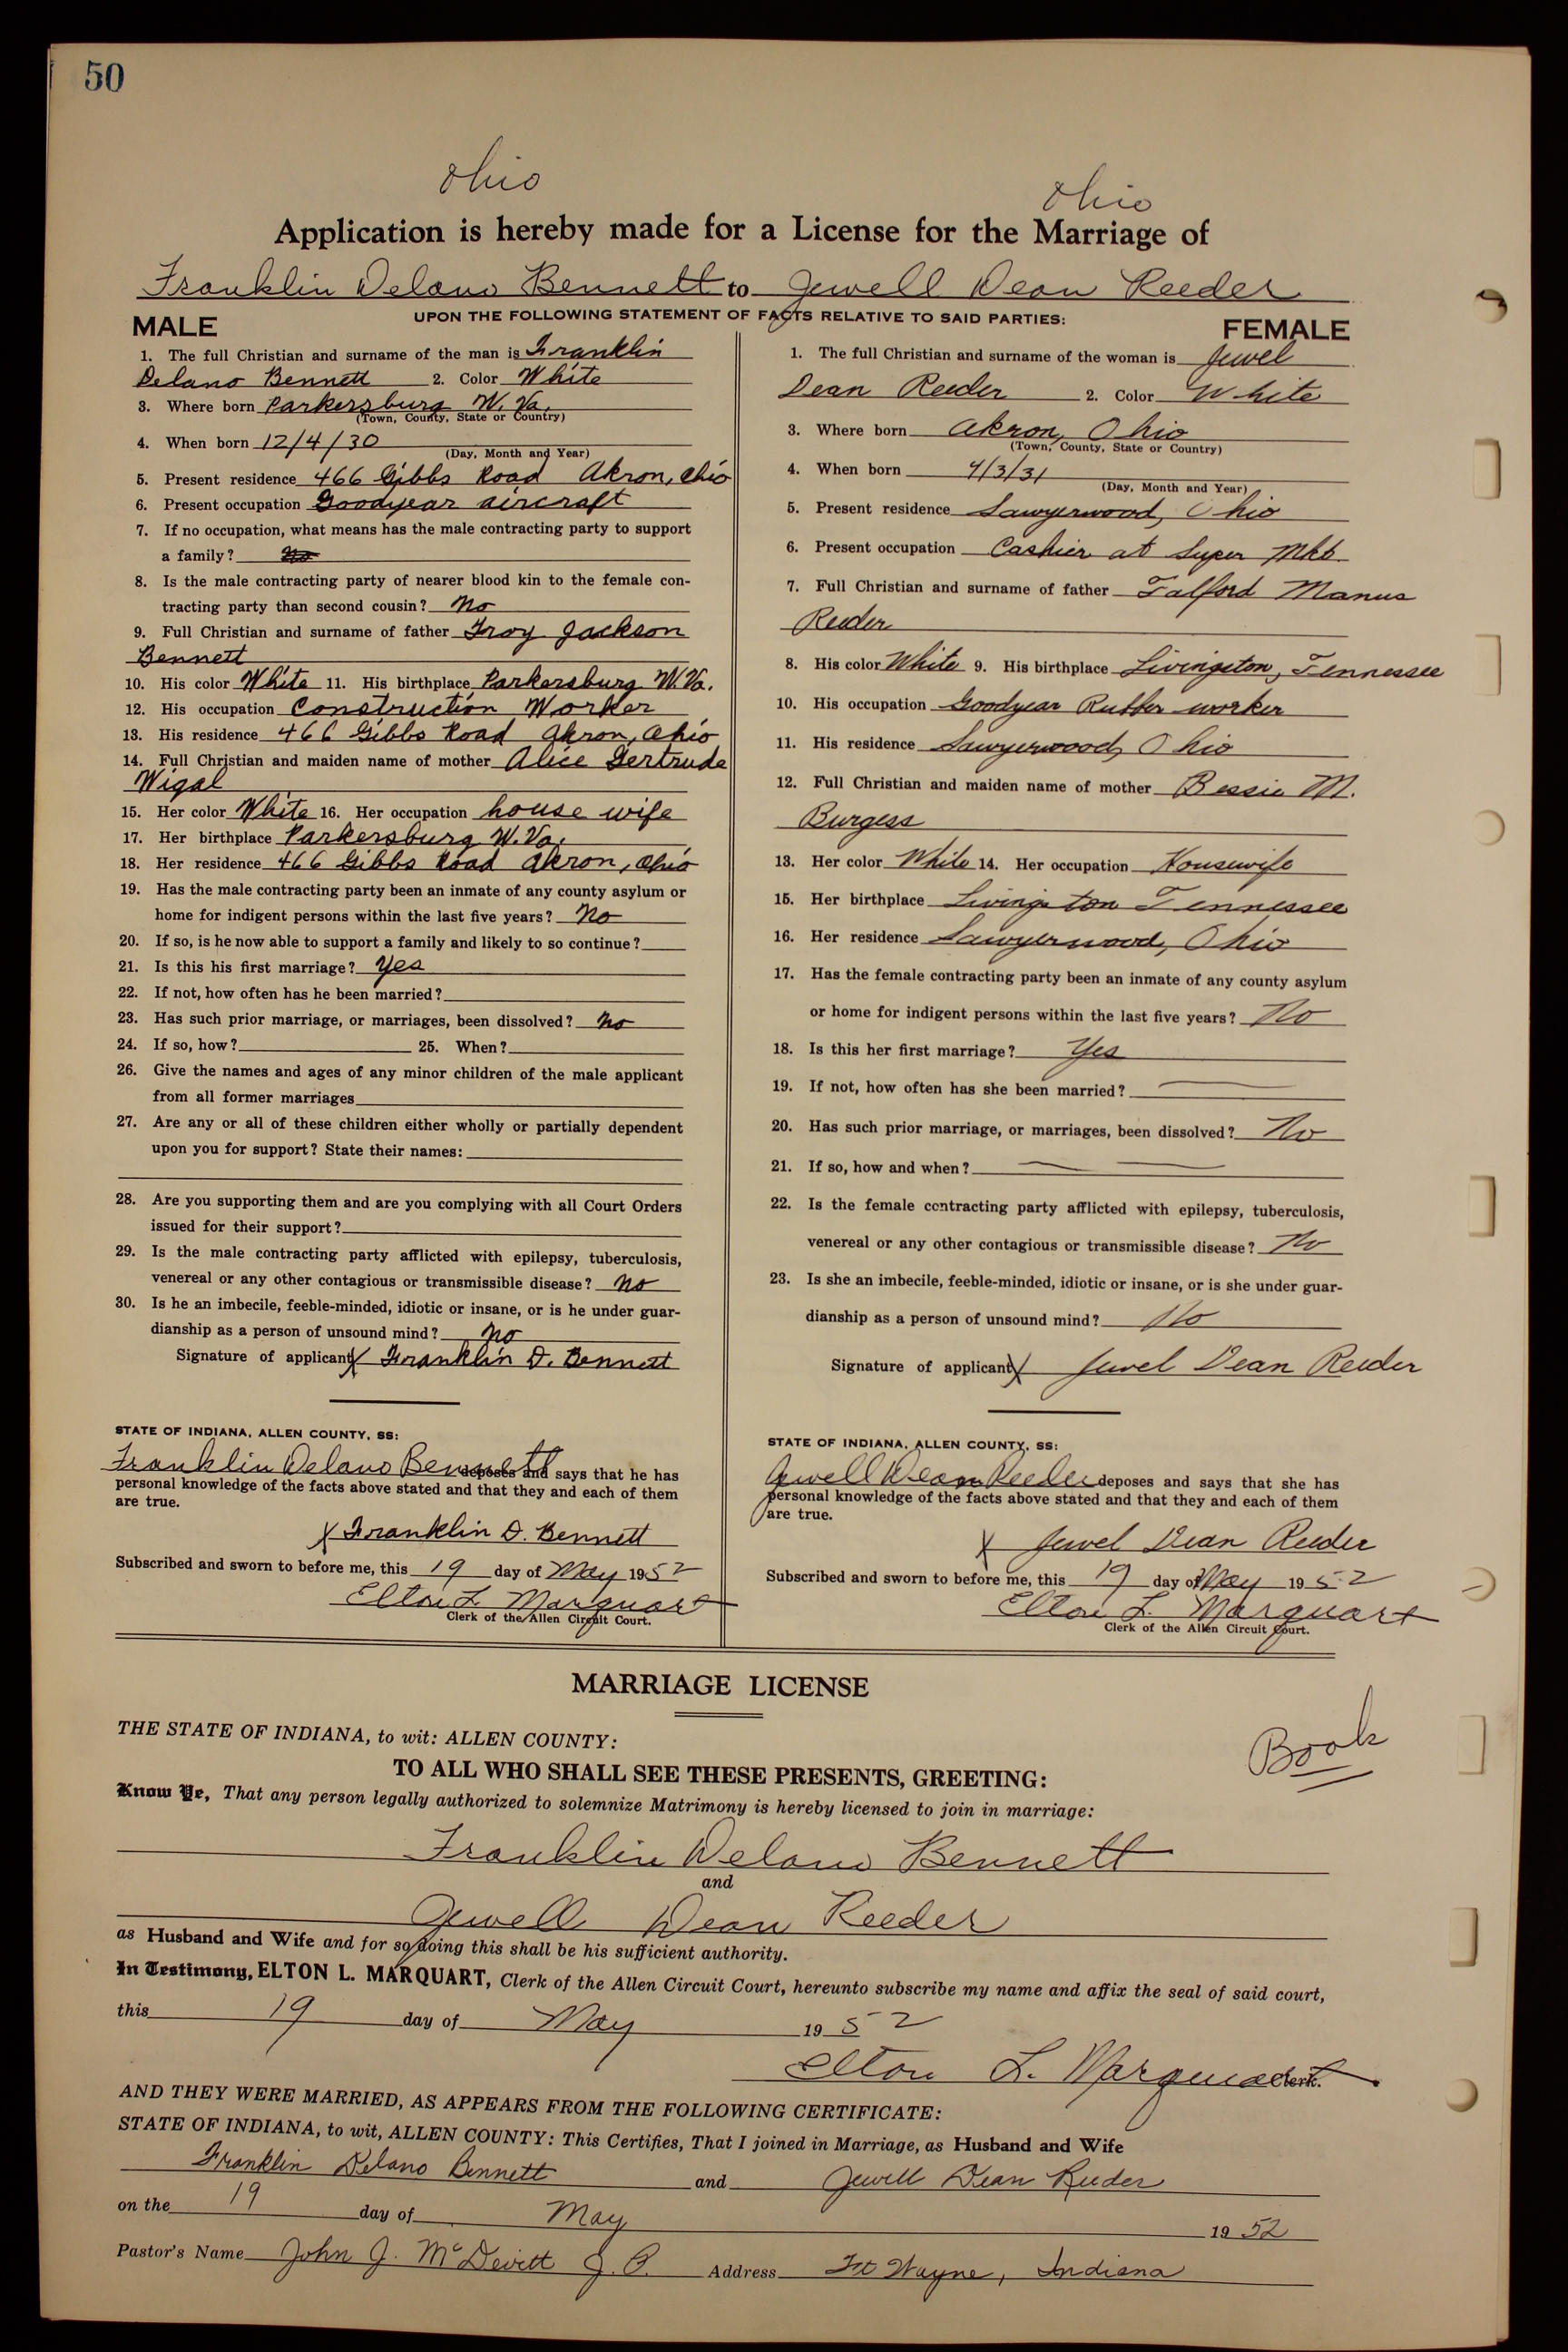 50
Ohio
Ohio
Application is hereby made for a License for the Marriage of
Franklin Delano Bennett to Jewell Dean Reeder
UPON THE FOLLOWING STATEMENT OF FACTS RELATIVE TO SAID PARTIES:
MALE
1. The full Christian and surname of the man is Franklin
Delano Bennett 2. Color White
3. Where born Parkersburg W. Va.
(Town, County, State or Country)
4. When born 12/4/30
(Day, Month and Year)
5. Present residence 466 Gibbs Road Akron, Ohio
6. Present occupation Goodyear aircraft
7. If no occupation, what means has the male contracting party to support
a family? No
8. Is the male contracting party of nearer blood kin to the female con-
tracting party than second cousin? No
9. Full Christian and surname of father Troy Jackson
Bennett
10. His color White 11. His birthplace Parkersburg W. Va.
12. His occupation Construction Worker
13. His residence 466 Gibbs Road Akron, Ohio
14. Full Christian and maiden name of mother Alice Gertrude
Wigal
15. Her color White 16. Her occupation house wife
17. Her birthplace Parkersburg W. Va.
18. Her residence 466 Gibbs Road Akron, Ohio
19. Has the male contracting party been an inmate of any county asylum or
home for indigent persons within the last five years? No
20. If so, is he now able to support a family and likely to so continue?
21. Is this his first marriage? Yes
22. If not, how often has he been married?
23. Has such prior marriage, or marriages, been dissolved? No
24. If so, how? 25. When?
26. Give the names and ages of any minor children of the male applicant
from all former marriages
27. Are any or all of these children either wholly or partially dependent
upon you for support? State their names:
28. Are you supporting them and are you complying with all Court Orders
issued for their support?
29. Is the male contracting party afflicted with epilepsy, tuberculosis,
venereal or any other contagious or transmissible disease? No
30. Is he an imbecile, feeble-minded, idiotic or insane, or is he under guar-
dianship as a person of unsound mind? No
Signature of applicant X Franklin D. Bennett
STATE OF INDIANA, ALLEN COUNTY, SS:
Franklin Delano Bennett deposes and says that he has
personal knowledge of the facts above stated and that they and each of them
are true.
X Franklin D. Bennett
Subscribed and sworn to before me, this 19 day of May 1952
Elton L. Marquart
Clerk of the Allen Circuit Court.
FEMALE
1. The full Christian and surname of the woman is Jewel
Dean Reeder 2. Color White
3. Where born Akron, Ohio
(Town, County, State or Country)
4. When born 4/3/31
(Day, Month and Year)
5. Present residence Sawyerwood, Ohio
6. Present occupation Cashier at Super Mkt.
7. Full Christian and surname of father Talford Manus
Reeder
8. His color White 9. His birthplace Livingston, Tennessee
10. His occupation Goodyear Rubber worker
11. His residence Sawyerwood, Ohio
12. Full Christian and maiden name of mother Bessie M.
Burgess
13. Her color White 14. Her occupation Housewife
15. Her birthplace Livingston Tennessee
16. Her residence Sawyerwood, Ohio
17. Has the female contracting party been an inmate of any county asylum
or home for indigent persons within the last five years? No
18. Is this her first marriage? Yes
19. If not, how often has she been married?
20. Has such prior marriage, or marriages, been dissolved? No
21. If so, how and when?
22. Is the female contracting party afflicted with epilepsy, tuberculosis,
venereal or any other contagious or transmissible disease? No
23. Is she an imbecile, feeble-minded, idiotic or insane, or is she under guar-
dianship as a person of unsound mind? No
Signature of applicant X Jewel Dean Reeder
STATE OF INDIANA, ALLEN COUNTY, SS:
Jewell Dean Reeder deposes and says that she has
personal knowledge of the facts above stated and that they and each of them
are true.
X Jewel Dean Reeder
Subscribed and sworn to before me, this 19 day of May 1952
Elton L. Marquart
Clerk of the Allen Circuit Court.
MARRIAGE LICENSE
THE STATE OF INDIANA, to wit: ALLEN COUNTY:
Book
TO ALL WHO SHALL SEE THESE PRESENTS, GREETING:
Know Ye, That any person legally authorized to solemnize Matrimony is hereby licensed to join in marriage:
Franklin Delano Bennett
and
Jewell Dean Reeder
as Husband and Wife and for so doing this shall be his sufficient authority.
In Testimony, ELTON L. MARQUART, Clerk of the Allen Circuit Court, hereunto subscribe my name and affix the seal of said court,
this 19 day of May 1952
Elton L. Marquart Clerk.
AND THEY WERE MARRIED, AS APPEARS FROM THE FOLLOWING CERTIFICATE:
STATE OF INDIANA, to wit, ALLEN COUNTY: This Certifies, That I joined in Marriage, as Husband and Wife
Franklin Delano Bennett and Jewell Dean Reeder
on the 19 day of May 1952
Pastor's Name John J. McDevitt J. P. Address Ft Wayne, Indiana